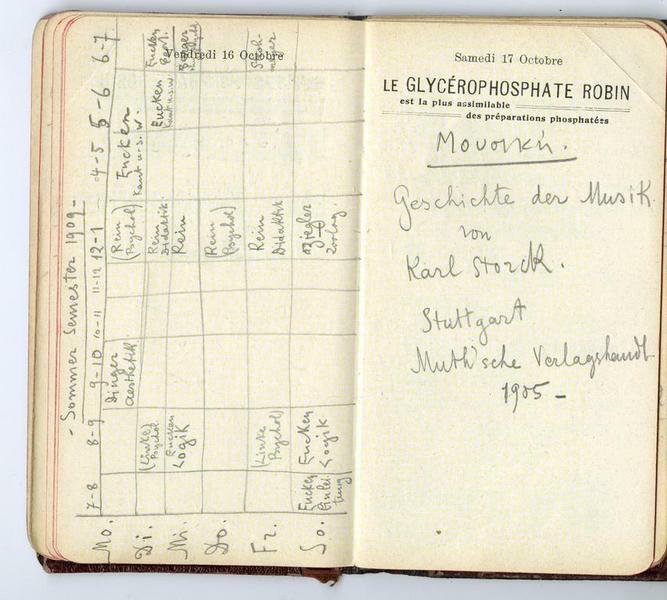 Vendredi 16 Octobre
- Sommer Semester 1909 -
7-8
8-9
9-10
10-11
11-12
12-1
4-5
5-6
6-7
Mo.
Dinger
Aesthetik.
(Rein
Psychol)
Eucken
Kant u.s.w.
Di.
(Linke)
Psychol.
Rein
Didaktik.
Eucken
Mi.
Eucken
Logik
Rein
Eucken
Kant u.s.w.
Do.
(Rein
Psychol)
Fr.
(Linke
Psychol)
Rein
Didaktik
So.
Eucken
Einlei
tung
Eucken
Logik
Ziegler
Zoolog.
Samedi 17 Octobre
LE GLYCÉROPHOSPHATE ROBIN
est la plus assimilable
des préparations phosphatées
Μουσική.
Geschichte der Musik
von
Karl Storck.
Stuttgart
Muth'sche Verlagshandl
1905 -